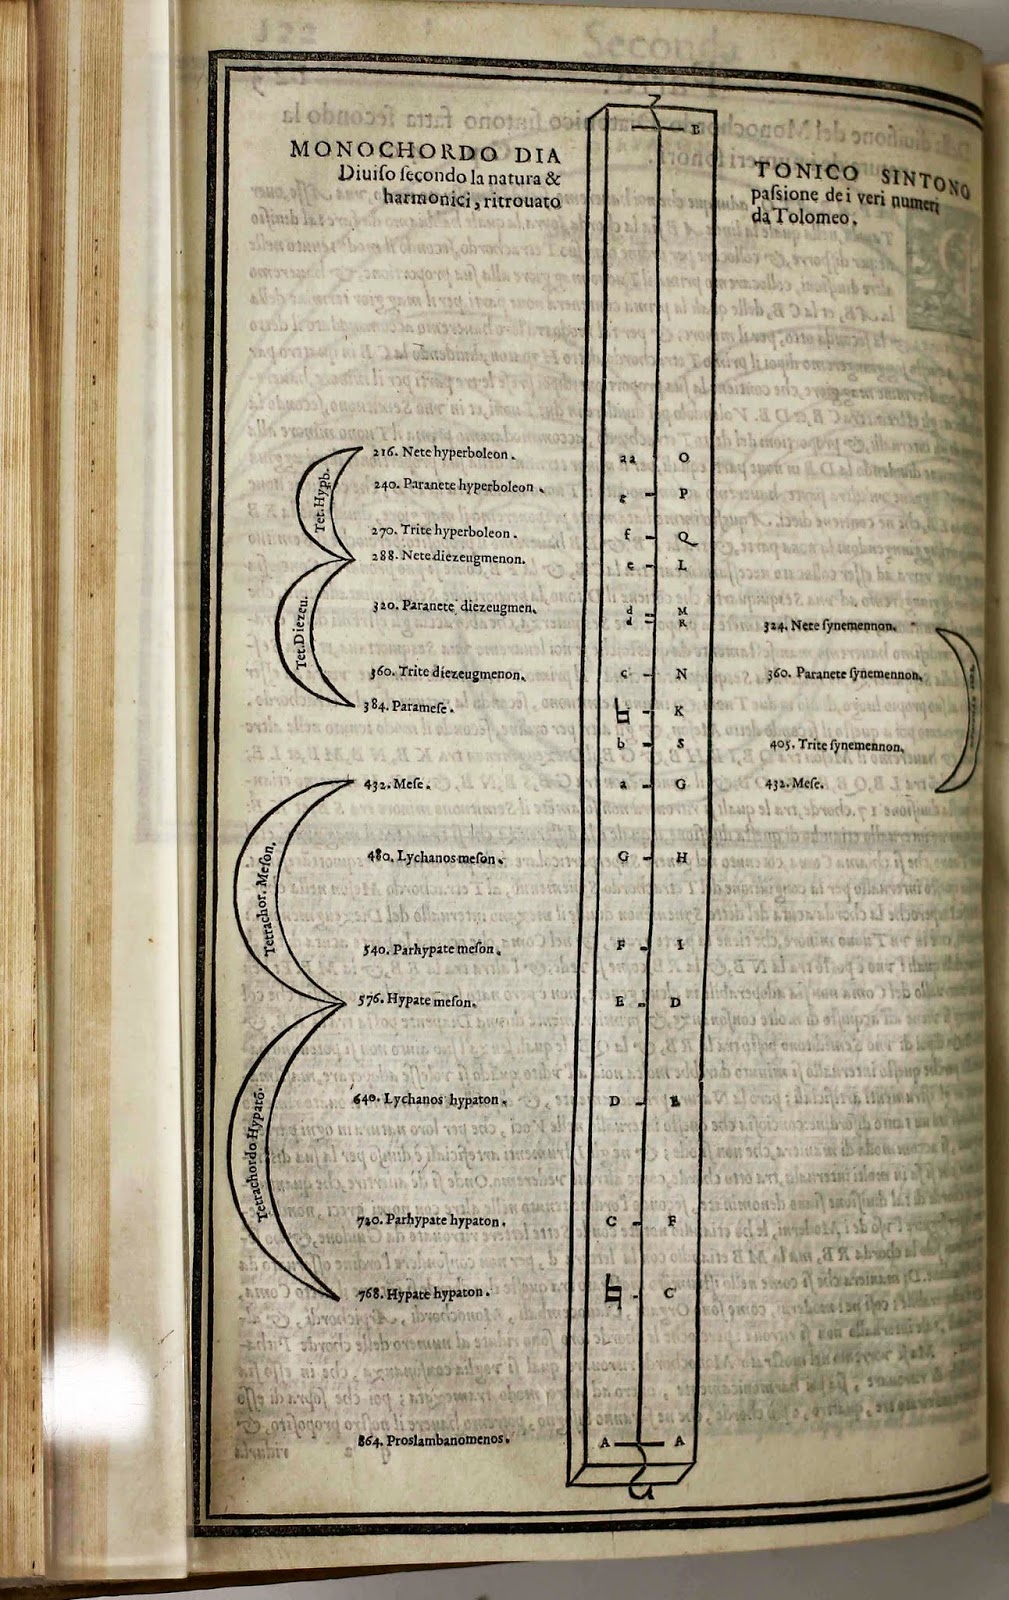 MONOCHORDO DIA TONICO SINTONO
Diuiso secondo la natura & passione de i veri numeri
harmonici, ritrouato da Tolomeo.
B
216. Nete hyperboleon. aa O
240. Paranete hyperboleon. g P
270. Trite hyperboleon. f Q
288. Nete diezeugmenon. e L
320. Paranete diezeugmen. d M
d R 324. Nete synemennon.
360. Trite diezeugmenon. c N 360. Paranete synemennon.
384. Paramese. ♮ K
b S 405. Trite synemennon.
432. Mese. a G 432. Mese.
480. Lychanos meson. G H
540. Parhypate meson. F I
576. Hypate meson. E D
640. Lychanos hypaton. D E
720. Parhypate hypaton. C F
768. Hypate hypaton. ♮ C
864. Proslambanomenos. A A
Tet. Hypb.
Tet. Diezeu.
Tetrachor. Meson.
Tetrachordo Hypatõ.